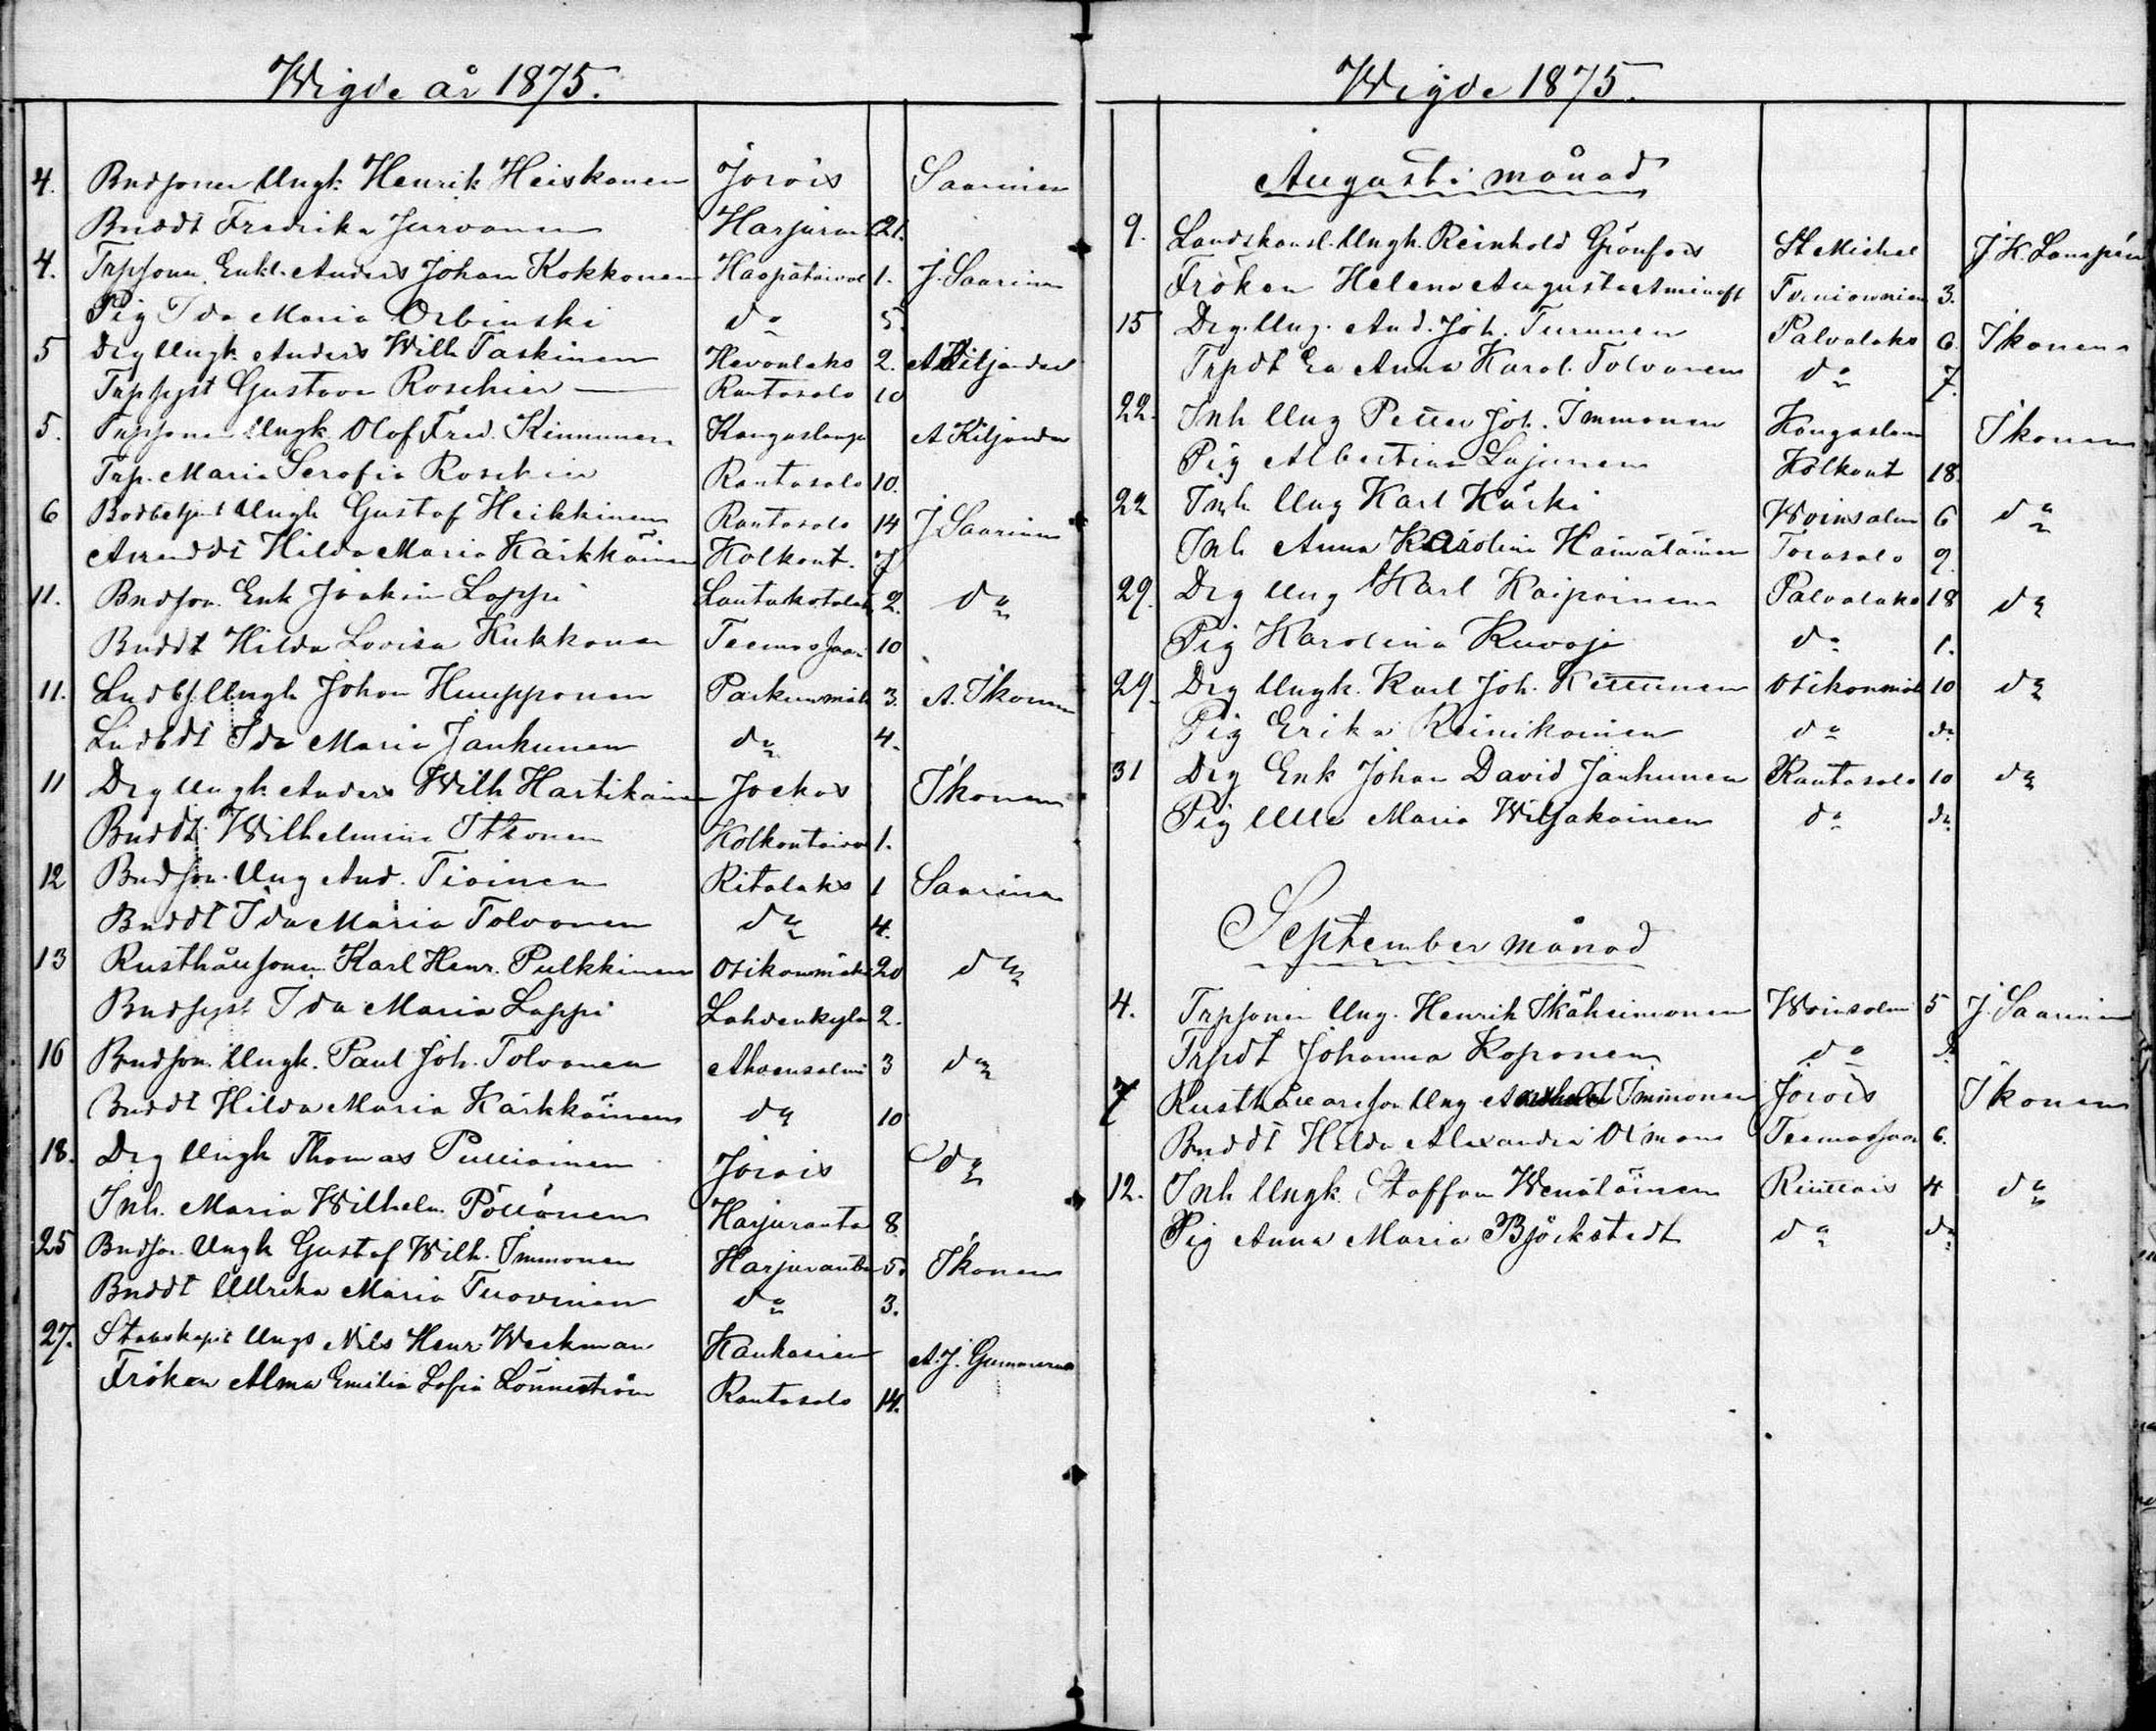 Wigde år 1875.
4. Bndsonen Ungk. Henrik Heiskanen Jorois Saarinen
Bnddt Fredrika Jurvanen Harjuran 21.
4. Trpsonen Enkl. Anders Johan Kokkonen Haapataival 1. J. Saarinen
Pig Ida Maria Orbinski do 5.
5 Drg Ungk Anders Wilh Taskinen Havonlaks 2. A Kiljander
Trpsyst Gustava Roschier Rantasalo 10
5. Trpsonen Ungk. Olof Fred. Kinnunen Kangaslampi A Kiljander
Trp. Maria Serafia Roschier Rantasalo 10.
6 Bodbetjent Ungk Gustaf Heikkinen Rantasalo 14 J Saarinen
Arenddt Hilda Maria Kärkkäinen Kolkont. 7
11. Bndson. Enk Joakim Lappi Lautakotalak 2. do
Bnddt Hilda Lovisa Kukkonen Teemassaari 10
11. Lndbf. Ungk Johan Huupponen Parkunmäk 3. A. Ikonen
Lndbdt Ida Maria Jankunen do 4.
11 Drg Ungk Anders Wilh Hartikainen Jockas Ikonen
Bnddt. Wilhelmina Itkonen Kolkontaival 1.
12 Bndson. Ung And. Tiainen Ritalaks 1 Saarinen
Bnddt Ida Maria Tolvanen do 4.
13 Rusthållsonen Karl Henr. Pulkkinen Osikonmäki 20 do
Bndsyst Ida Maria Lappi Lahdenkylä 2.
16 Bndson. Ungk. Paul Joh. Tolvanen Ahvensalmi 3 do
Bnddt Hilda Maria Kärkkäinen do 10
18. Drg Ungk Thomas Pulliainen Jorois do
Inh. Maria Wilhelm. Pöllänen Harjuranta 8
25 Bndson. Ungk Gustaf Wilh. Immonen Harjuranta 5. Ikonen
Bnddt Ulrika Maria Tuovinen do 3.
27. Stabskapit Ungs Nils Henr Weckman Kaukasien A. J. Gummerus
Fröken Alma Emilia Sofia Lönneström Rantasalo 14.
Wigde 1875.
Augusti månad
9. Landskansl. Ungk. Reinhold Grönfors St Michel
Fröken Helena Augusta Aminoff 3.
15 Drg. Ung. And. Joh. Turunen Palvalaks 6. Ikonen
Trpdt Eva Anna Karol. Tolvanen do 7.
22. Inh Ung Petter Joh. Immonen Kangaslam Ikonen
Pig Albertina Lajunen Kolkont 18.
22 Inh Ung Karl Härki Woinsalmi 6 do
Inh Anna Karolina Hämäläinen Torasalo 9.
29. Drg Ung Karl Kaipainen Palvalaks 18 do
Pig Karolina Kuvaja do 1.
29. Drg Ungk. Karl Joh. Kettunen Osikonmäk 10 do
Pig Erika Reinikainen do do
31 Drg Enk Johan David Jankunen Rantasalo 10 do
Pig Ulla Maria Wiljakainen do do
September månad
4. Trpsonen Ung. Henrik Ikäheimonen Woinsalmi 5 J. Saarinen
Trpdt Johanna Koponen do do
7 Rusthållaresson Ung Immonen Jorois Ikonen
Bnddt Hilda Alexandra Teemassaa 6.
12. Inh Ungk. Staffan Wenäläinen 4 do
Pig Anna Maria Björkstedt do do